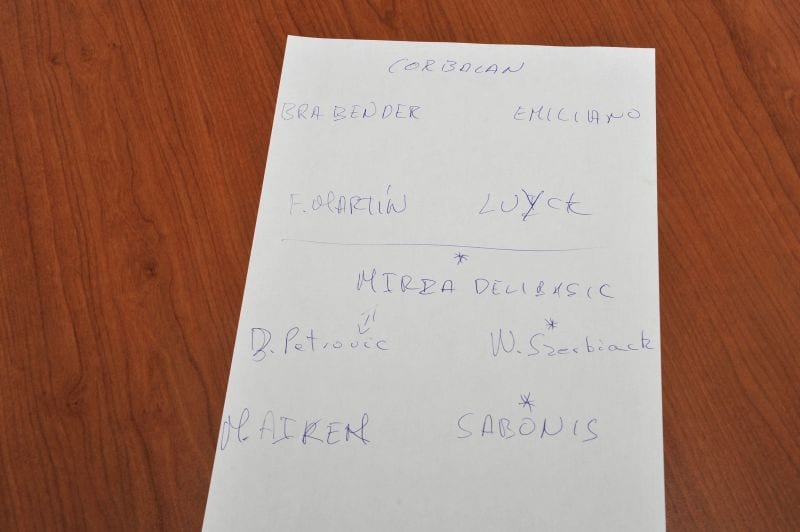 CORBALAN
BRABENDER EMILIANO
F. MARTÍN LUYCK
*
MIRZA DELIBASIC
*
D. Petrovic W. Szerbiack
*
M. AIKEM SABONIS